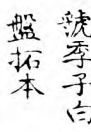 虢季子白
盤拓本